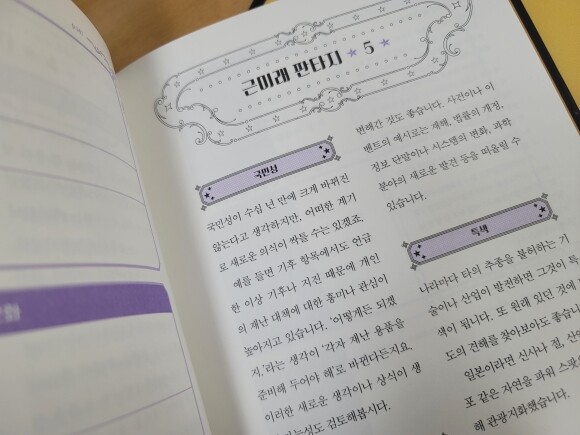 근미래 판타지 ★ 5 ★
국민성
국민성이 수십 년 만에 크게 바뀌진
않는다고 생각하지만, 어떠한 계기
로 새로운 의식이 싹틀 수는 있겠죠.
예를 들면 기후 항목에서도 언급
한 이상 기후나 지진 때문에 개인
의 재난 대책에 대한 흥미나 관심이
높아지고 있습니다. '어떻게든 되겠
지.'라는 생각이 '각자 재난 용품을
준비해 두어야 해'로 바뀐다든지요.
이러한 새로운 생각이나 상식이 생
가능성도 검토해봅시다.
변해간 것도 좋습니다. 사건이나 이
벤트의 예시로는 재해, 법률의 개정,
정보 단말이나 시스템의 변화, 과학
분야의 새로운 발견 등을 떠올릴 수
있습니다.
특색
나라마다 타의 추종을 불허하는 기
술이나 산업이 발전하면 그것이 특
색이 됩니다. 또 원래 있던 것에
도의 견해를 찾아보아도 좋습니
일본이라면 신사나 절, 산
포 같은 자연을 파워 스팟
해 관광지화했습니다.